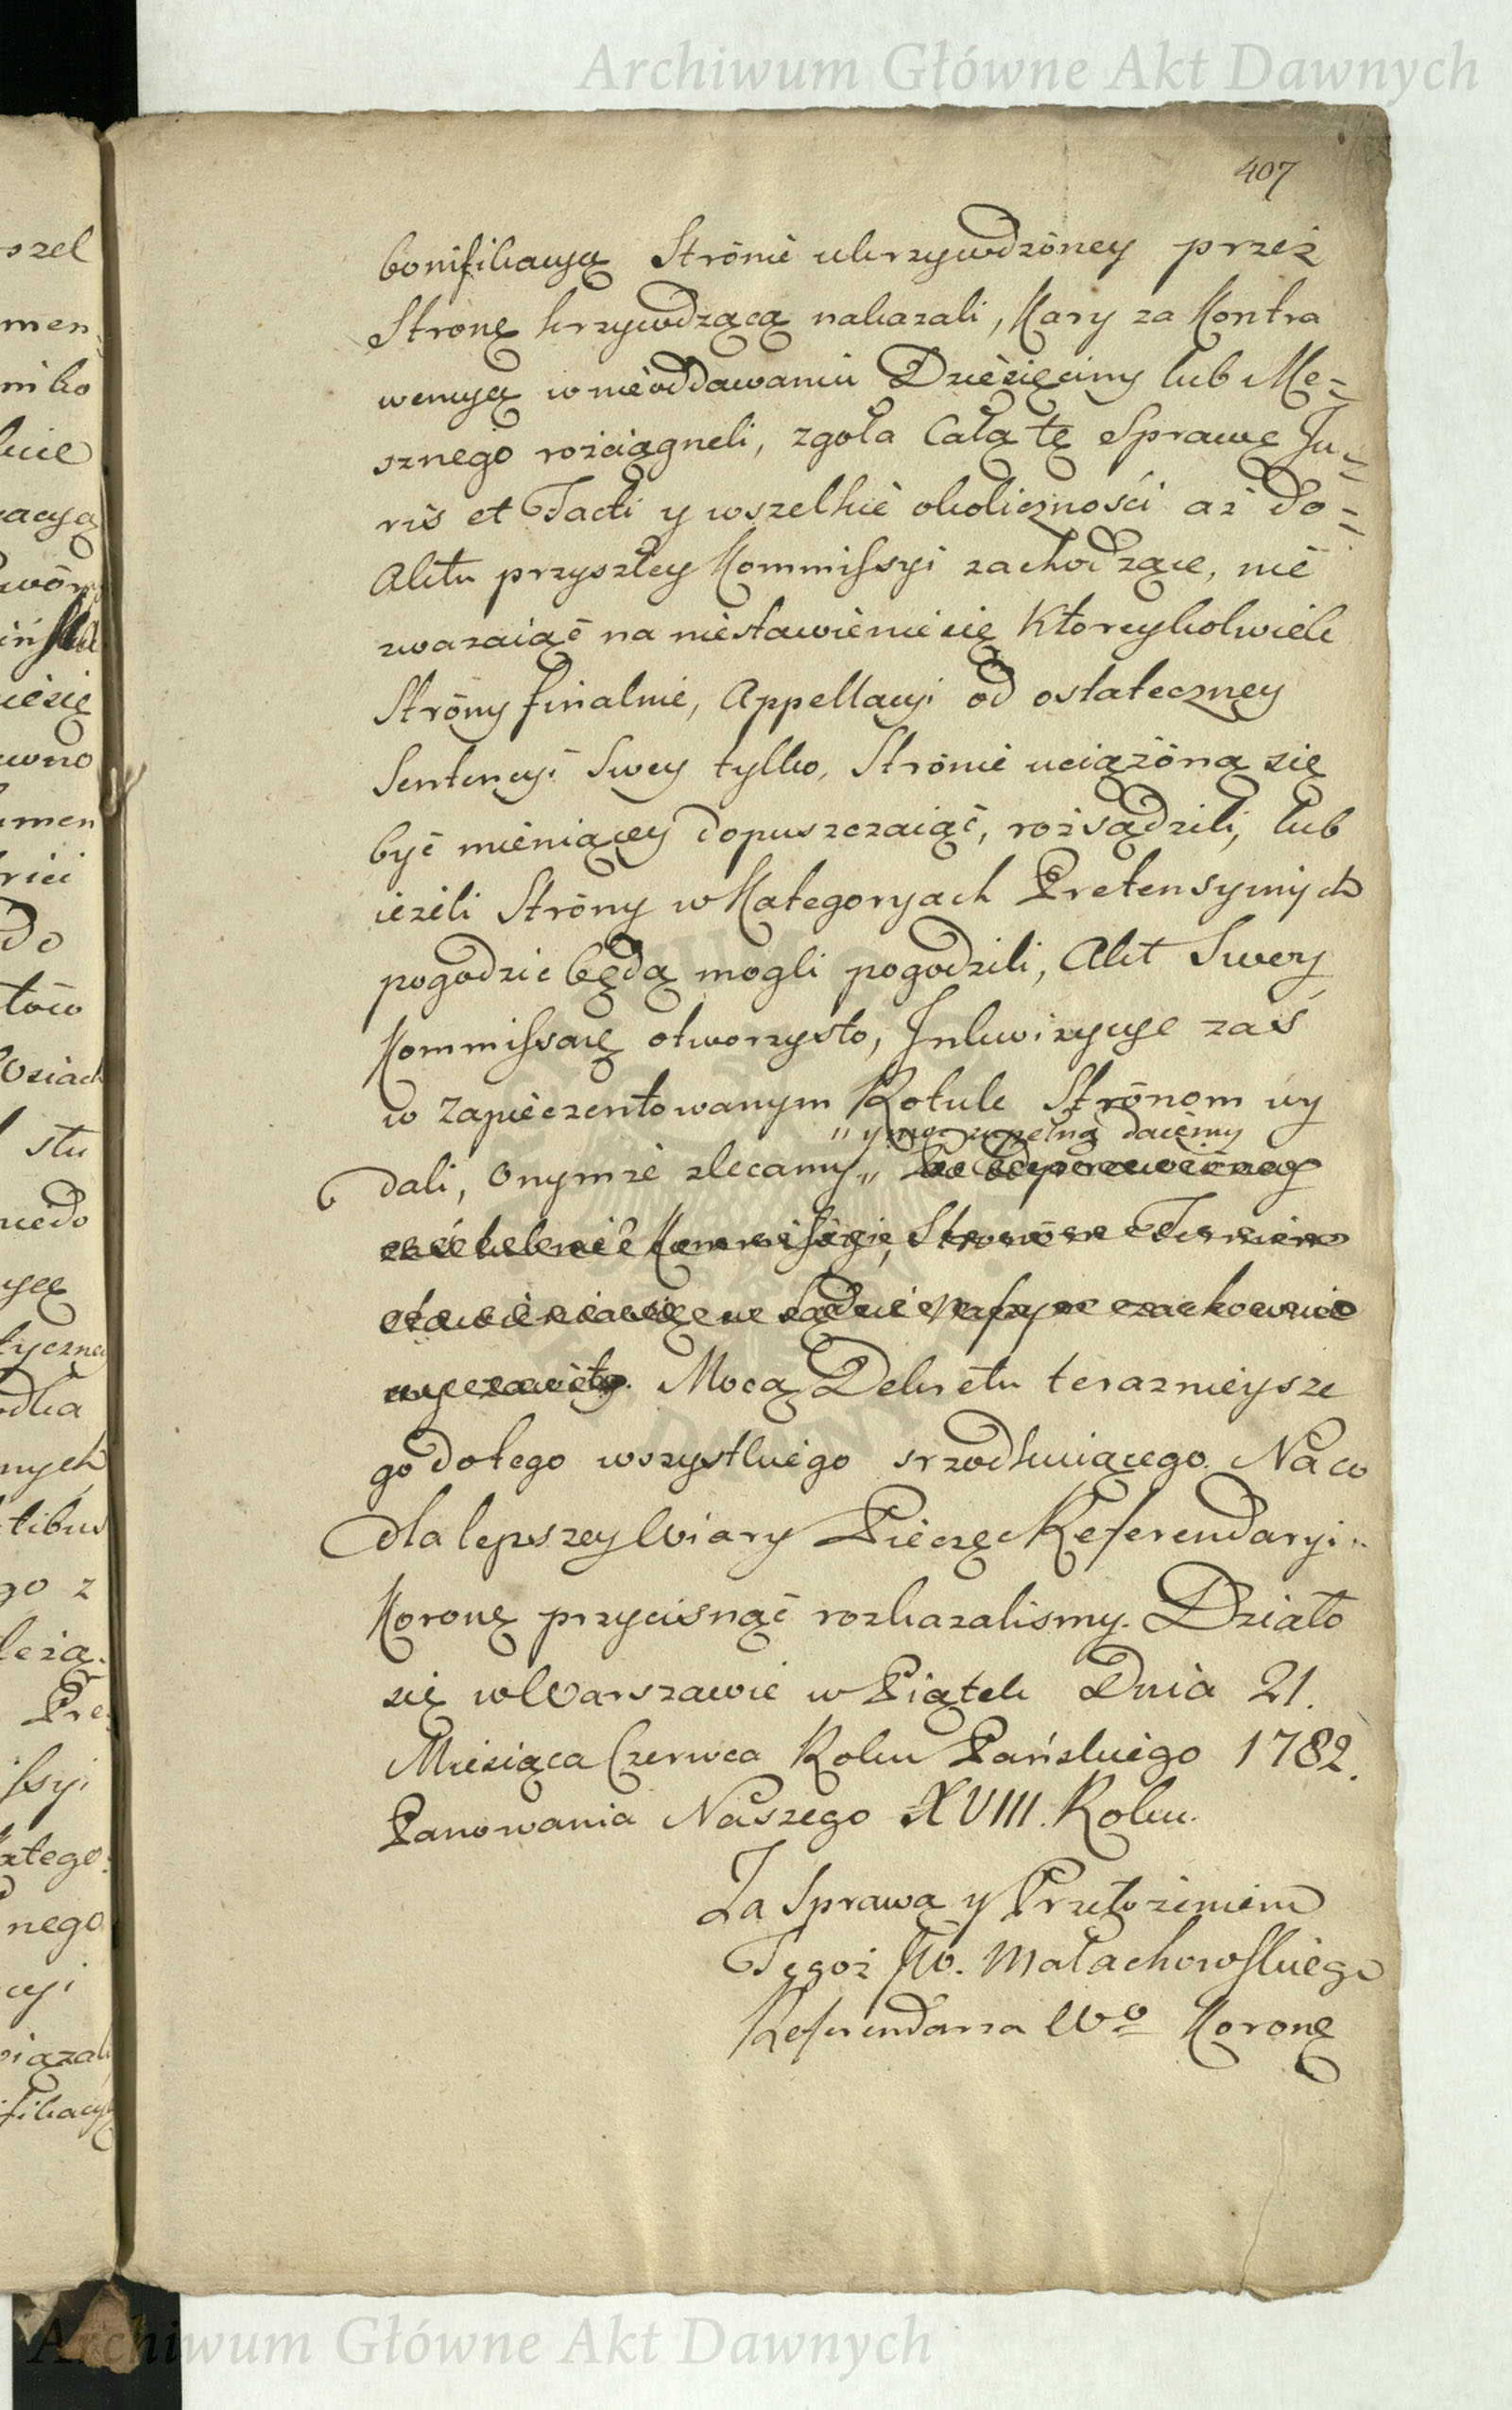 Archiwum Główne Akt Dawnych
407
bonifikacyą Strōnie ukrzywdzōney przez
Stronę krzywdzącą nakazali, Kary za Kontra
wencyą w nieoddawaniu Dziesięciny lub Me=
sznego rozciągneli, zgoła Całą tę Sprawę Ju=
ris et Facti y wszelkie okoliczności aż do=
Aktu przyszłey Kommissyi zachodzące, nie
zwazaiąc na niestawienie się Ktoreykolwiek
Strōny finalnie, Appellacyi od ostateczney
Sentencyi Swey tylko, Strōnie uciążōną się
być mieniącey dopuszczaiąc, rozsądzili, lub
ieżeli Strōny w Kategoryach Pretensynych
pogodzic będą mogli pogodzili, Akt Swey
Kommissyi otworzysto, Inkwizycye zaś
w Zapieczentowanym Rotule Strōnom wy
„ y moc zupełną daiemy
dali, Onymże zlecamy „
Mocą Dekretu terazneysze
go do tego wszystkiego srzodkuiącego. Na co
dla lepszey Wiary Pieczęc Referendaryi „
Koronę przycisnąć rozkazalismy. Działo
się w Warszawie w Piątek Dnia 21.
Miesiąca Czerwca Roku Pańskiego 1782.
Panowania Naszego XVIII. Roku.
Za Sprawą y Przełożeniem
Tegoż Jw. Małachowskiego
Referendarza Wo Koronę
szel
men
niko
acyą
iesię
wno
men
Do
stu
yczney
nych
tibus
go z
Pre
ssyi
atego:
nego
cyi
iązali
fikacyą
Archiwum Główne Akt Dawnych